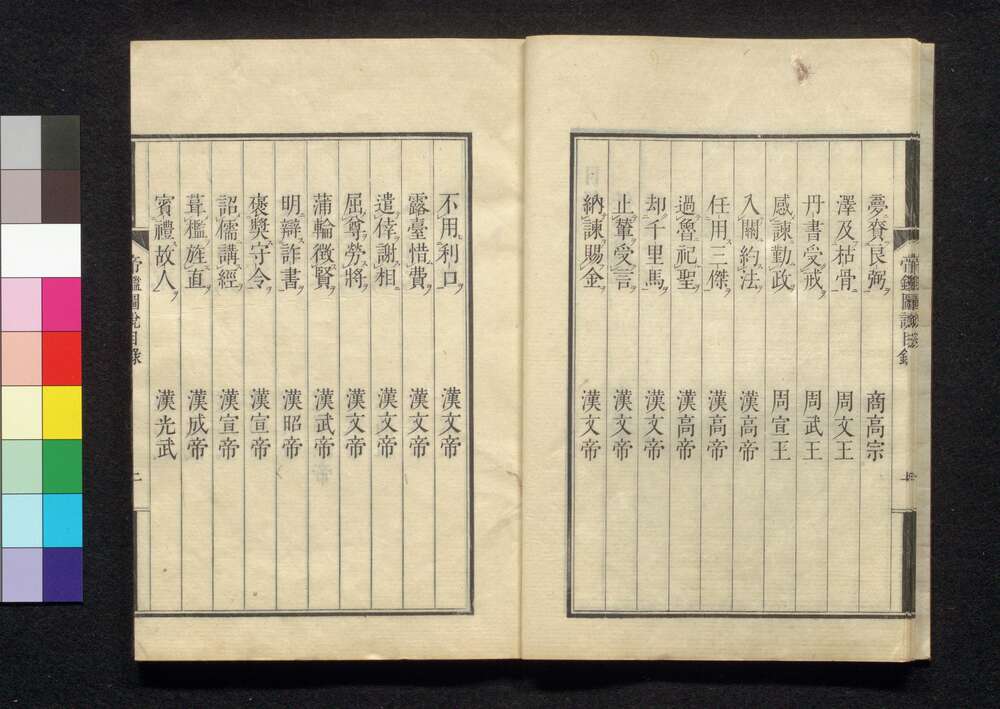 夢賚良弼 商高宗
澤及枯骨 周文王
丹書受戒 周武王
感諫勤政 周宣王
入關約法 漢高帝
任用三傑 漢高帝
過魯祀聖 漢高帝
却千里馬 漢文帝
止輦受言 漢文帝
納諫賜金 漢文帝
不用利口 漢文帝
露臺惜費 漢文帝
遣倖謝相 漢文帝
屈尊勞將 漢文帝
蒲輪徵賢 漢武帝
明辯詐書 漢昭帝
褒獎守令 漢宣帝
詔儒講經 漢宣帝
葺檻旌直 漢成帝
賓禮故人 漢光武
帝鑑圖說目錄